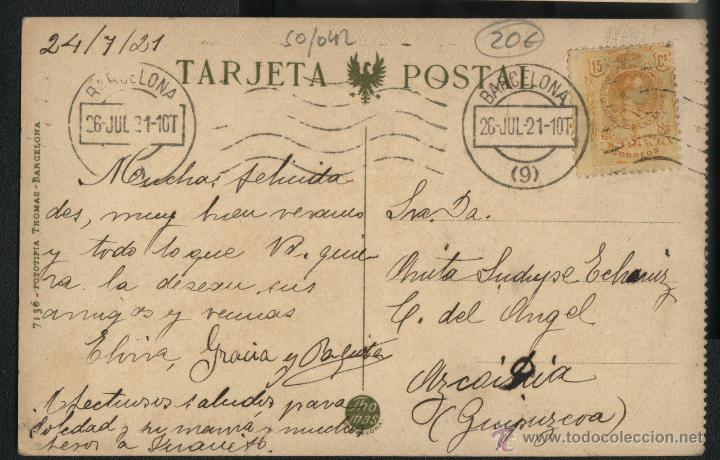 24/7/21
50/042
20€
TARJETA POSTAL
BARCELONA
26-JUL 21-10T
BARCELONA
26-JUL-21-10T
(9)
15 Cs
CORREOS
7136 - FOTOTIPIA THOMAS - BARCELONA
Muchas felicida
des, muy buen verano
y todo lo que Vd. quie
ra la desean sus
amigas y vecinas
Elvira, Gracia y Paquita
Afectuosos saludos para
Soledad y su mamá y muchos
besos a Juanito.
Thomas
BARCELONA
Sra. Da.
Anita
C. del Angel
Azcoitia
(Guipuzcoa)
todocoleccion
www.todocoleccion.net